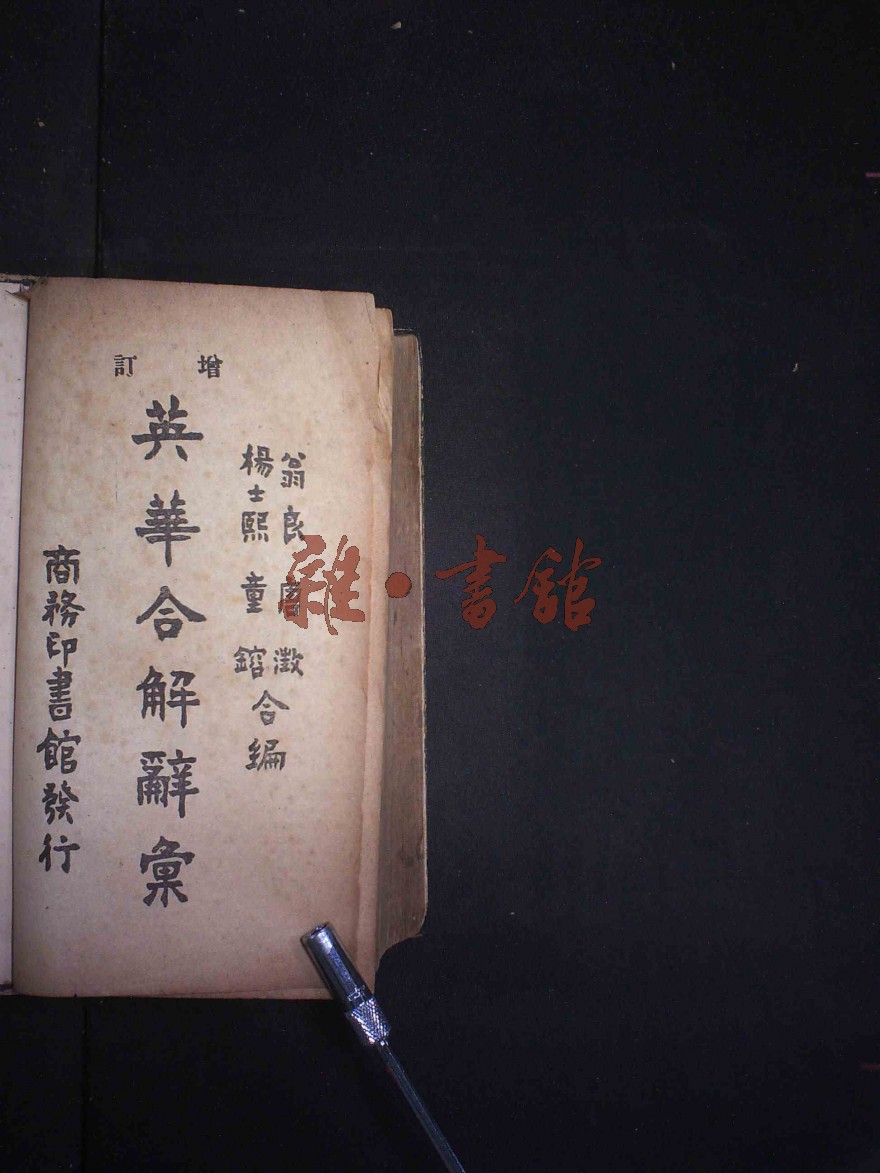 增訂
翁良 澂
楊士熙 童鎔
合編
英華合解辭彙
商務印書館發行
雜·書館